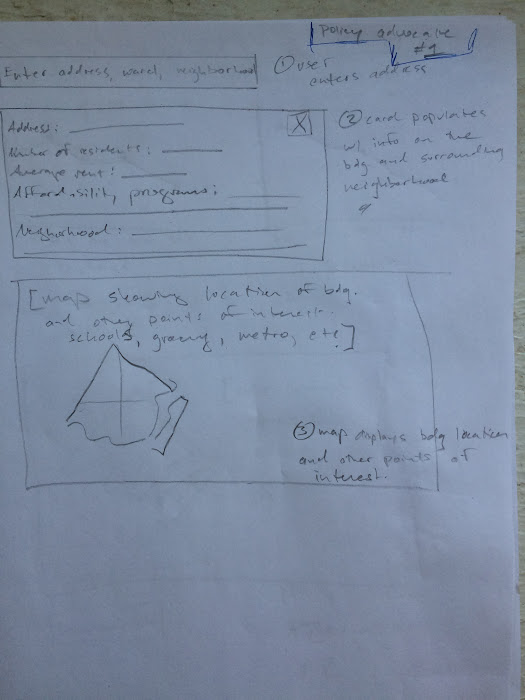 Policy advocate
#1
Enter address, ward, neighborhood
① user
enters address
Address:
Number of residents:
Average rent:
Affordability programs:
Neighborhood:
X
② card populates
w/ info on the
bdg and surrounding
neighborhood
[map showing location of bdg.
and other points of interest.
schools, grocery, metro, etc.]
③ map displays bdg location
and other points of
interest.